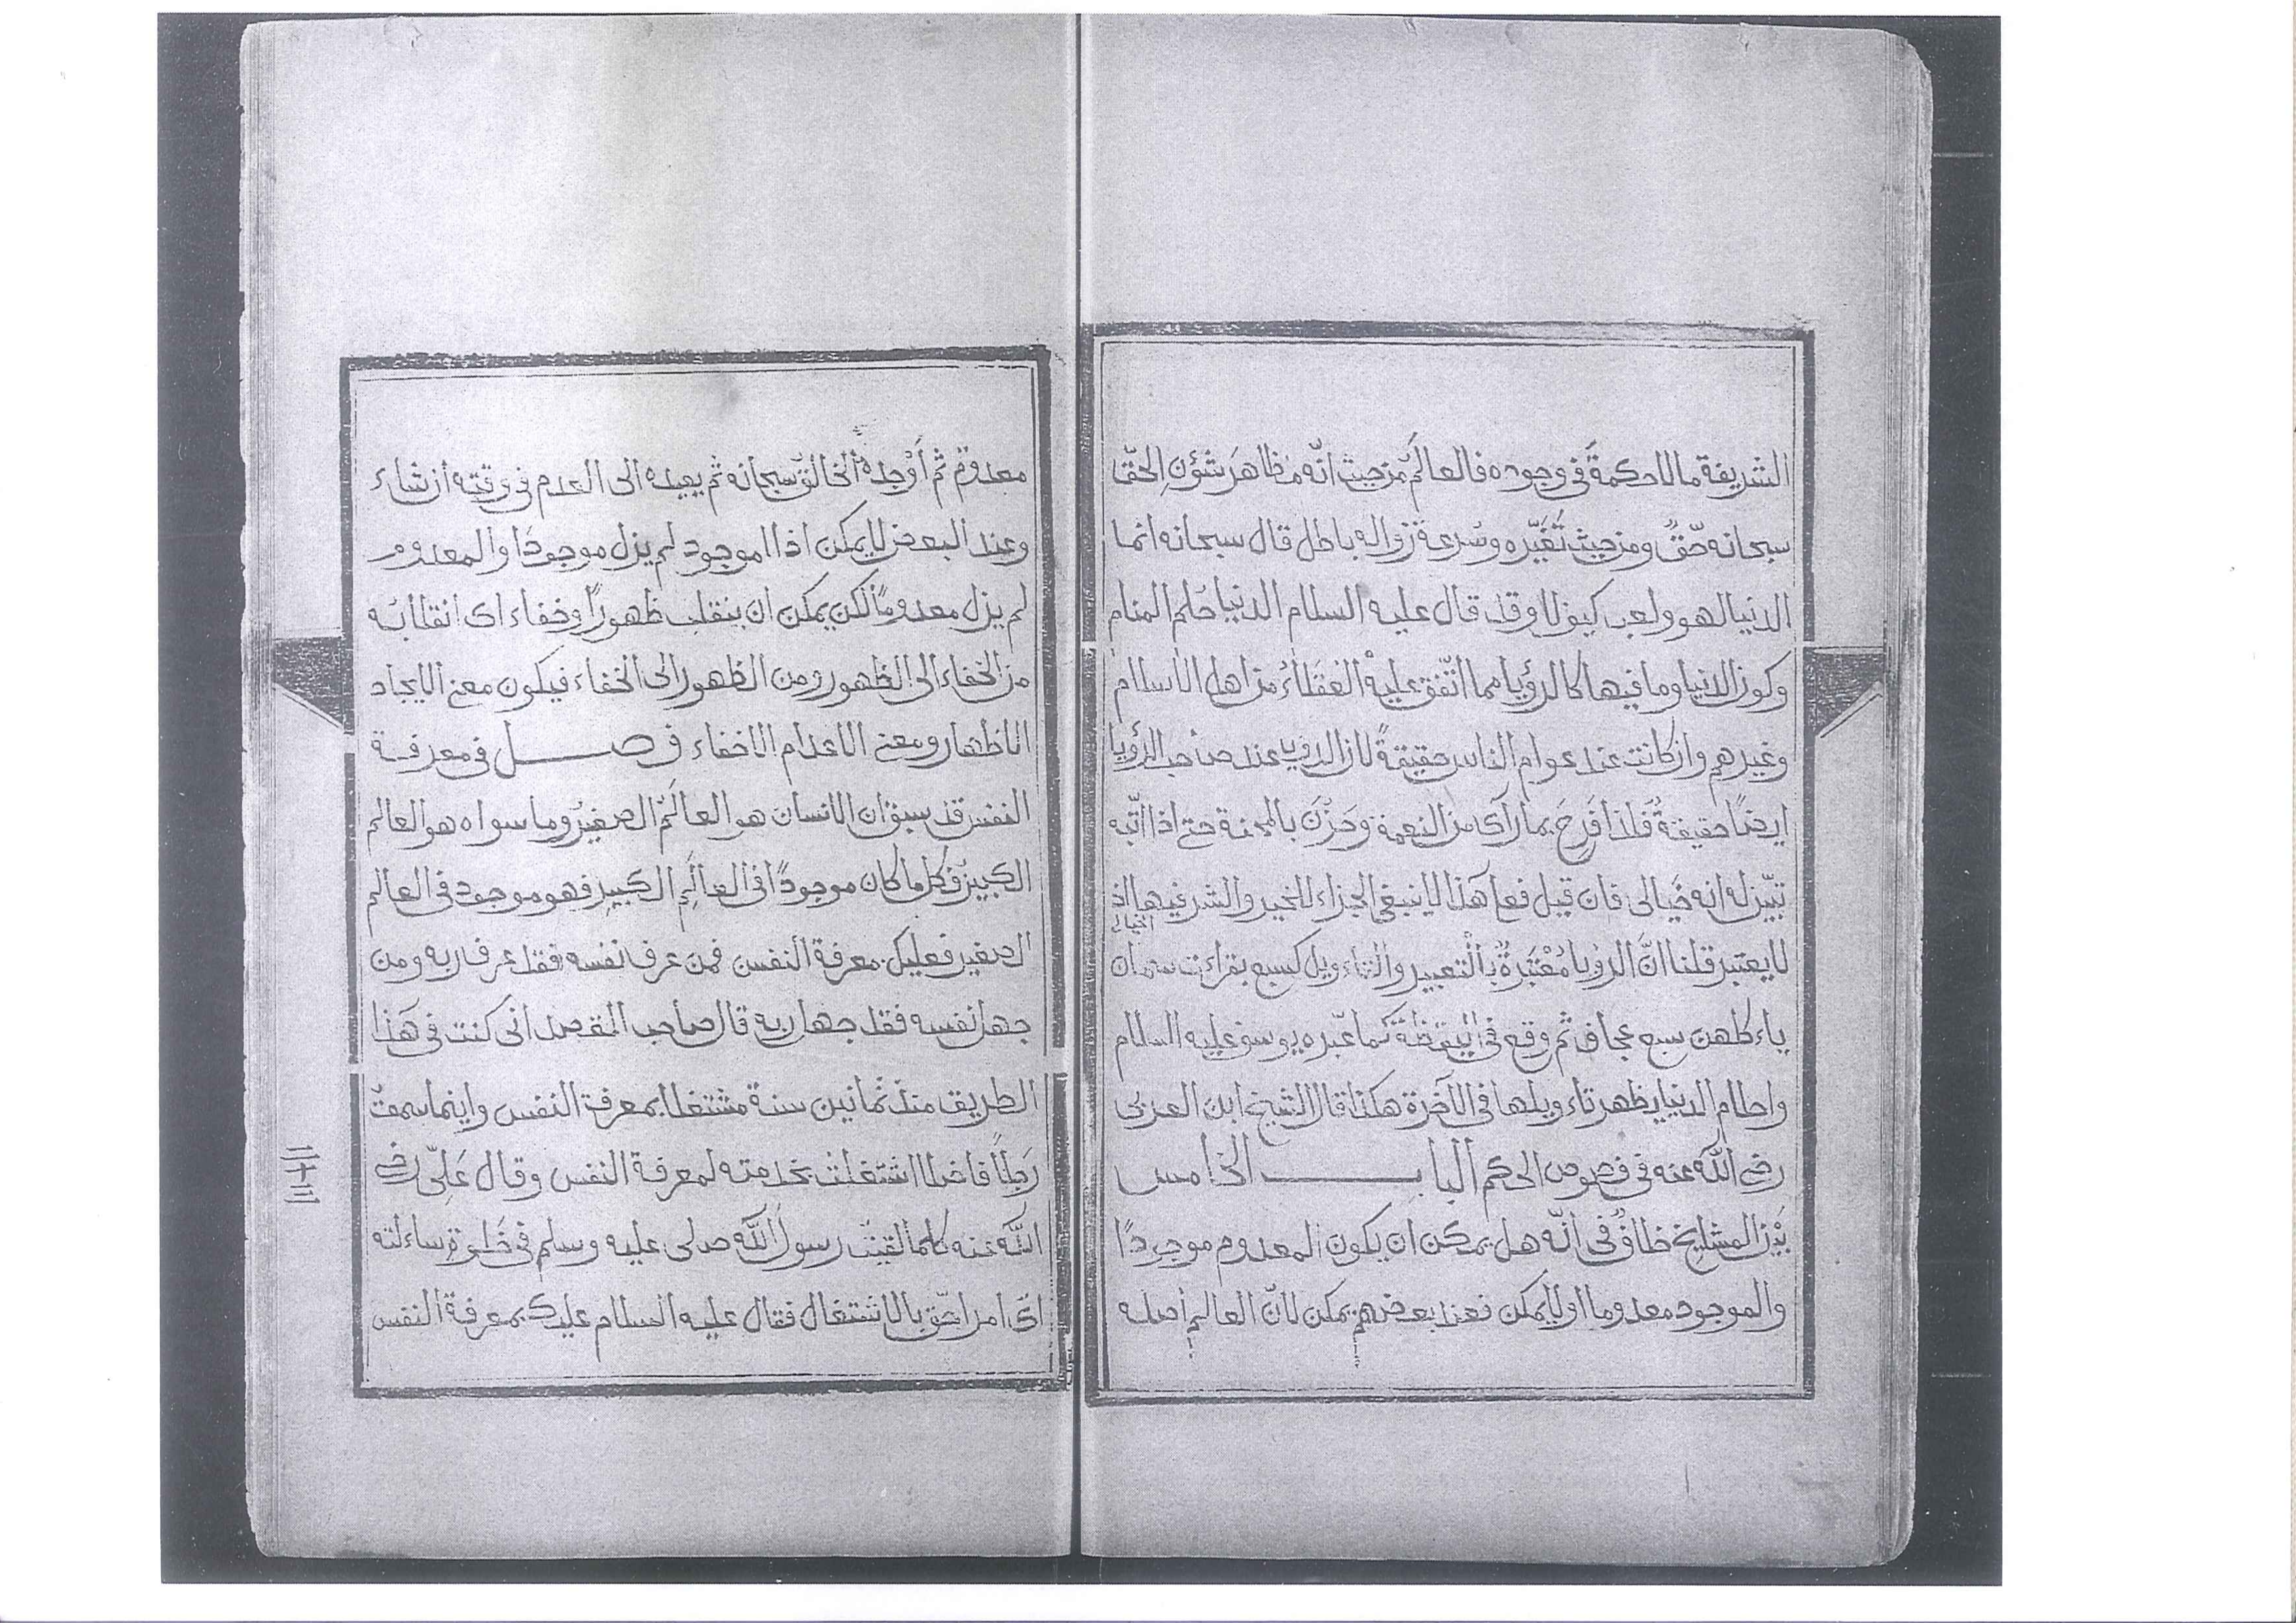 الشريفة مالا حكمةً فى وجوده فالعالَم من حيث انّه مظاهرَ شؤنِ الحقّ
سبحانه حقٌّ ومن حيث تَغَيّره وسُرعة زواله باطل قال سبحانه انما
الدنيا لهو ولعب كيولا وقد قال عليه السلام الدنيا حُلم المنام
وكون الدنيا وما فيها كالرؤيا مما اتّفق عليه العقلاءُ من اهل الاسلام
وغيرهم وان كانت عند عوام الناس حقيقةً لان الرؤيا عند صاحب الرؤيا
ايضًا حقيقةٌ فلذا فَرِحَ بما رآى من النعمة وحَزُنَ بالمحنة حتى اذا انتبه
تبيّن له انه خَيالى فان قيل فعلى هذا لاينبغى الجزاء للخير والشر فيها اذ
الخيال
لايعتبر قلنا انَّ الرؤيا مُعْتَبَرةٌ بالتعبير والتاءويل كسبع بقرات سمان
ياءكلهن سبع عجاف ثم وقع فى اليقظة كما عبّره يوسف عليه السلام
واحلام الدنيا يظهر تاءويلها فى الآخرة هكذا قال الشيخ ابن العربى
رضى اللّه عنه فى فصوص الحكم الباب الخامس
بَيْن المشايخ خلافٌ فى انّه هل يمكن ان يكون المعدوم موجودًا
والموجود معدوما اولايمكن فعند بعضهم يمكن لانّ العالم اصله
معدومٌ ثم أوْجدهُ الخالقُ سبحانه ثم يعيده الى العدم فى وقته ان شاء
وعند البعض لايمكن اذ الموجود لم يزل موجودًا والمعدوم
لم يزل معدومًا لكن يمكن ان ينقلب ظهورًا وخفاء اى انقلابُه
من الخفاء الى الظهور ومن الظهور الى الخفاء فيكون معنى الايجاد
الاظهار ومعنى الاعدام الاخفاء فصل فى معرفة
النفس قد سبق ان الانسان هو العالَمُ الصغيرُ وما سواه هو العالم
الكبيرُ فكل ما كان موجودًا فى العالَمِ الكبيرِ فهو موجود فى العالم
الصغير فعليك بمعرفة النفس فمن عرف نفسه فقد عرف ربه ومن
جهل نفسه فقد جهل ربه قال صاحب المقصد انى كنت فى هَذا
الطريق منذ ثمانين سنة مشتغلا بمعرفة النفس واينما سمعتُ
رَجلاً فاضلا اشتغلتُ بخدمته لمعرفة النفس وقال عَلِىّ رضى
اللّه عنه كلما لقيتُ رسولَ اللّه صلى عليه وسلم فى خَلوة ساءلته
اىّ امر احقّ بالاشتغال فقال عليه السلام عليك بمعرفة النفس